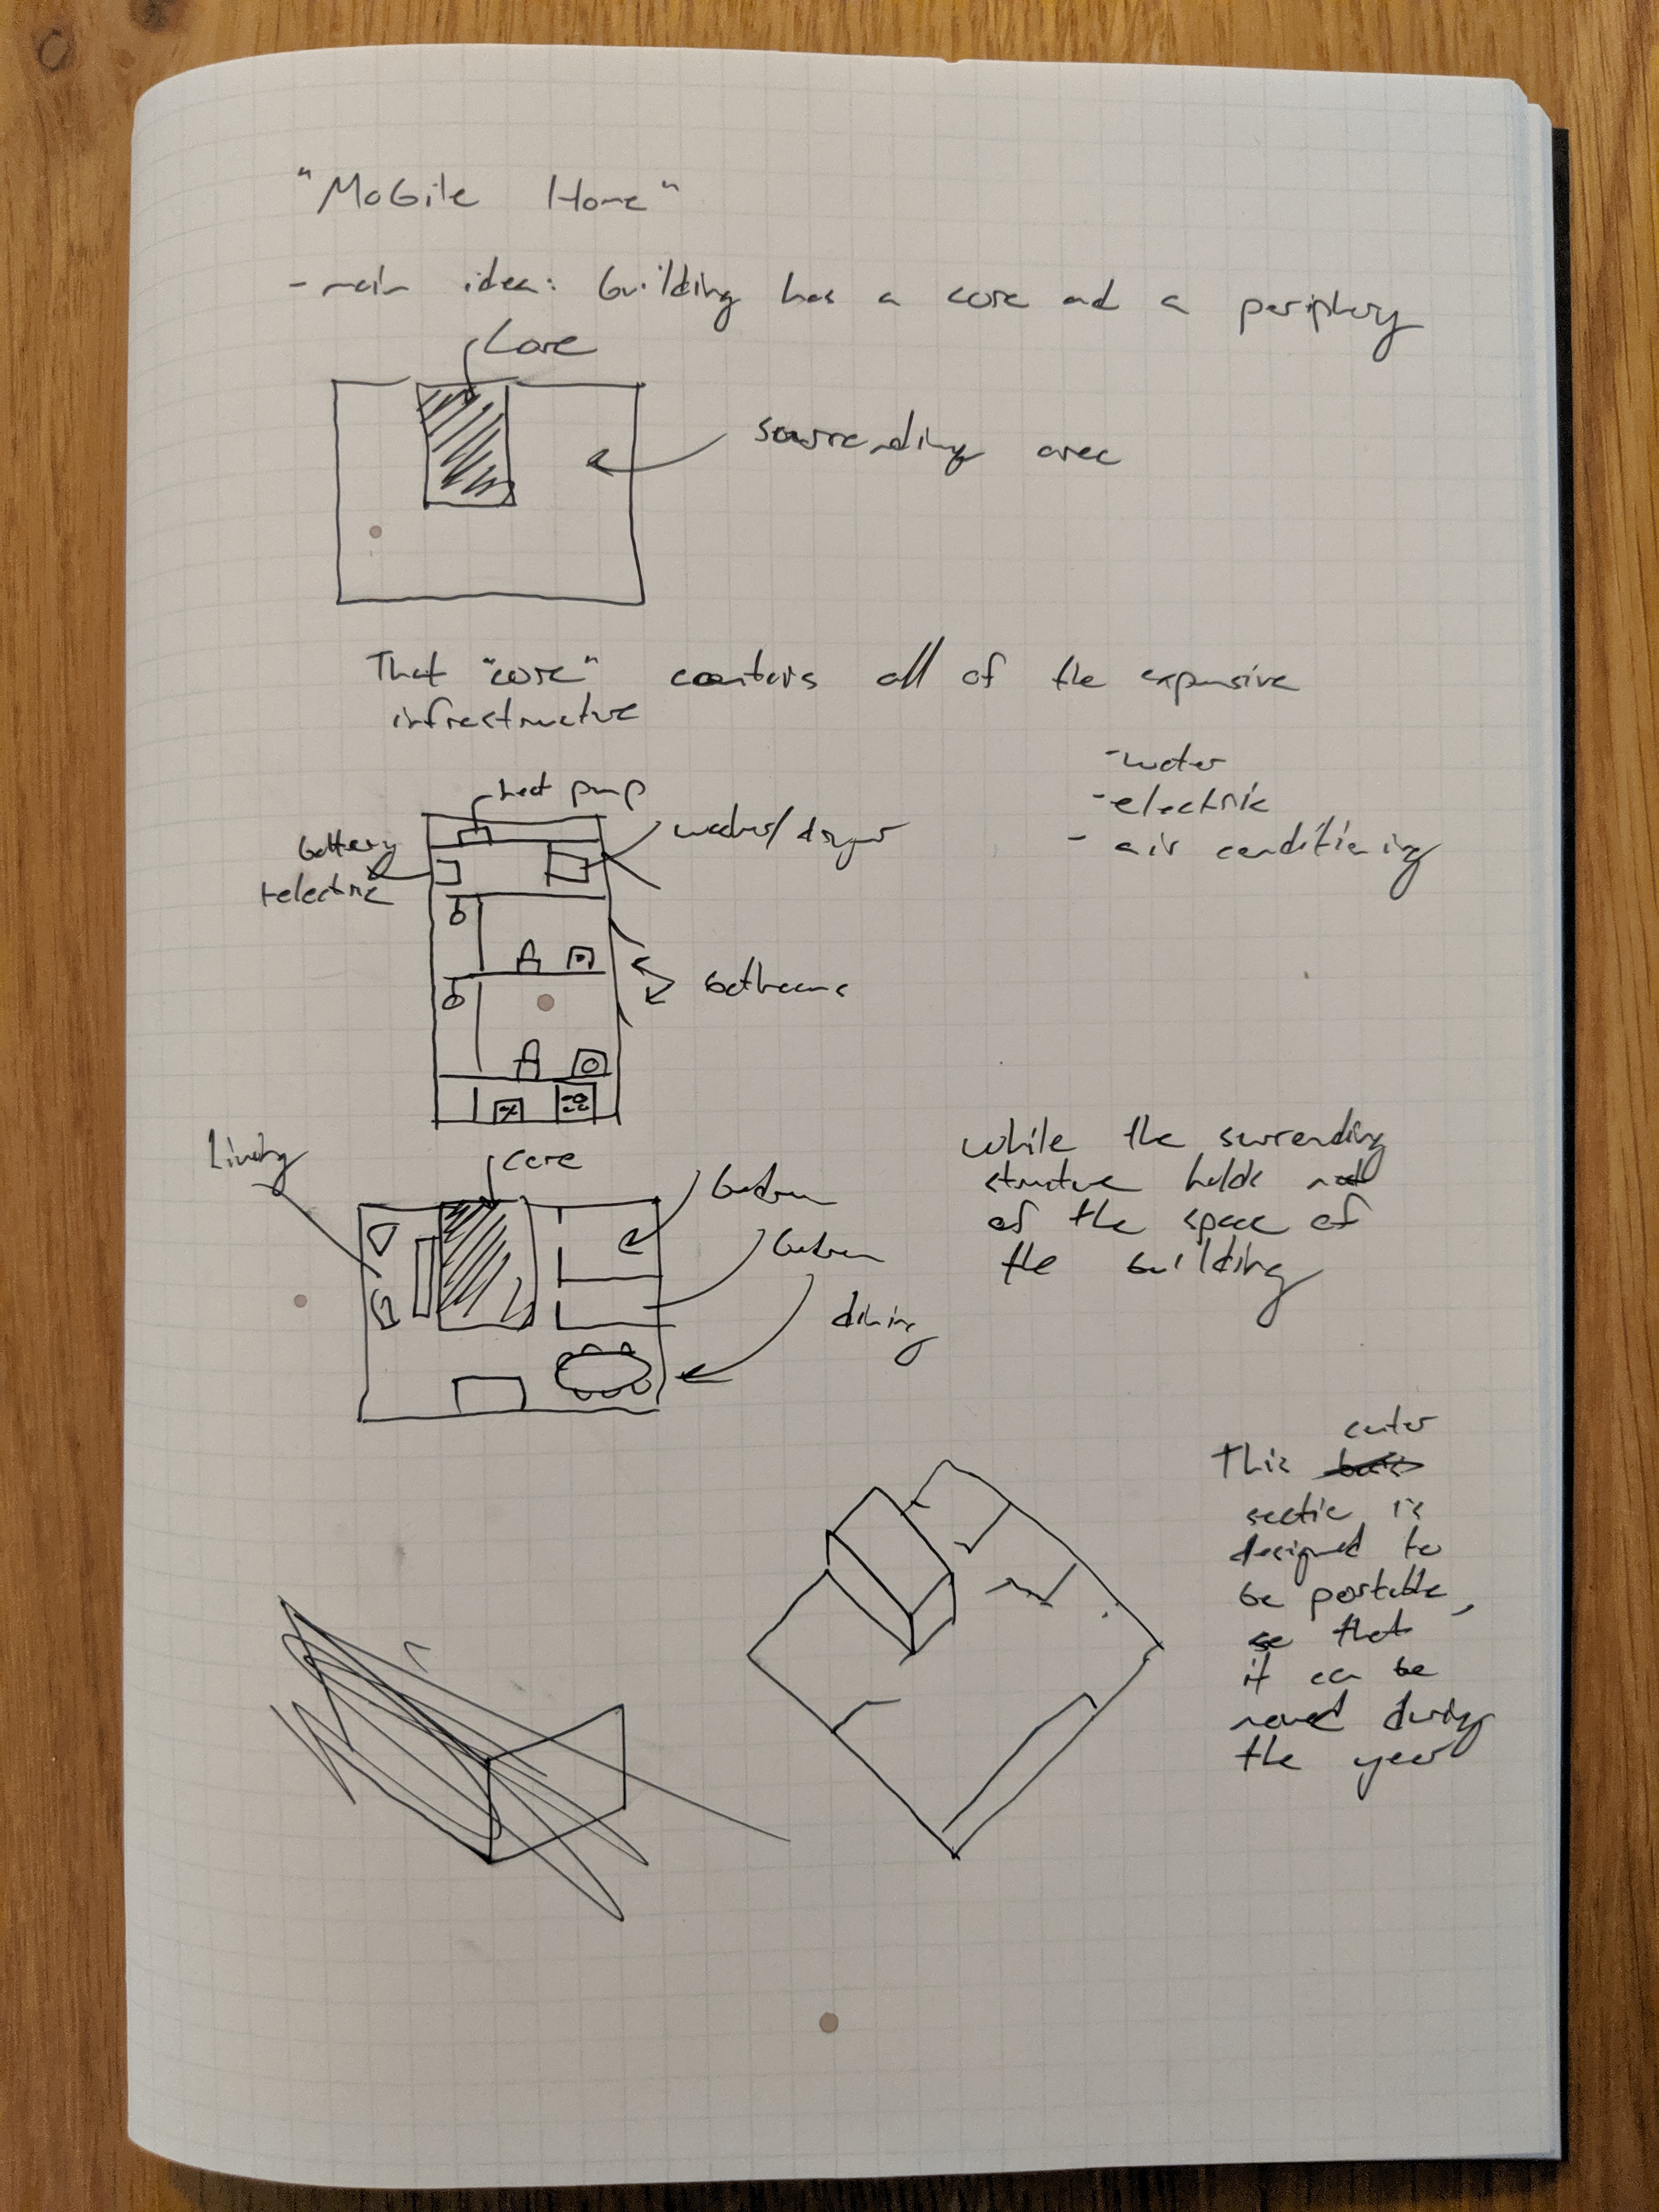 "Mobile Home"
- main idea: building has a core and a periphery
Core
surrounding area
That "core" contains all of the expensive
infrastructure
- water
- electric
- air conditioning
heat pump
washer/dryer
battery
+electric
bathrooms
Living
core
bedroom
bedroom
dining
while the surrounding
structure holds most
of the space of
the building
center
This
section is
designed to
be portable,
so that
it can be
moved during
the year